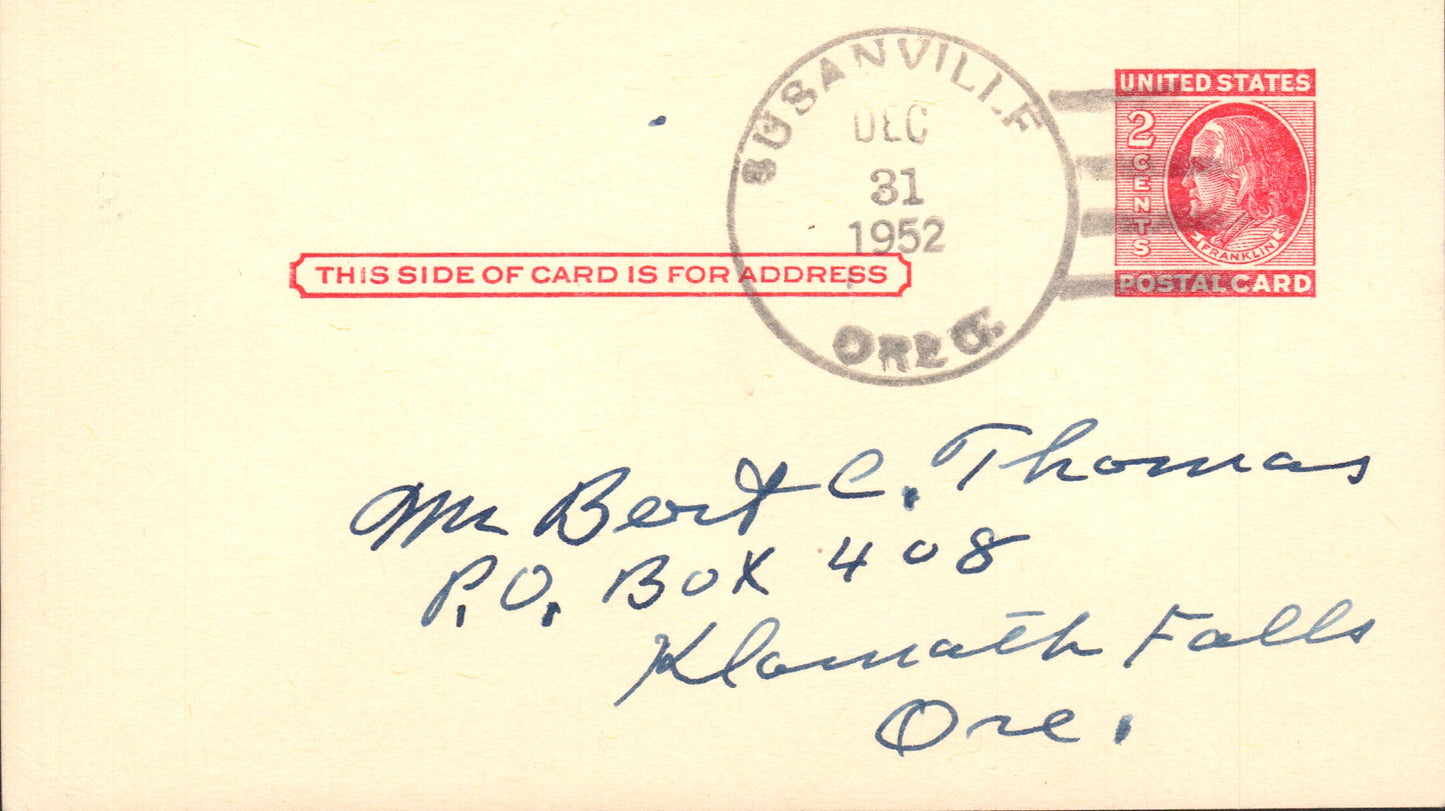 SUSANVILLE
DEC
31
1952
OREG.
UNITED STATES
2 CENTS
FRANKLIN
POSTAL CARD
THIS SIDE OF CARD IS FOR ADDRESS
Mr Bert C. Thomas
P.O. Box 408
Klamath Falls
Ore.